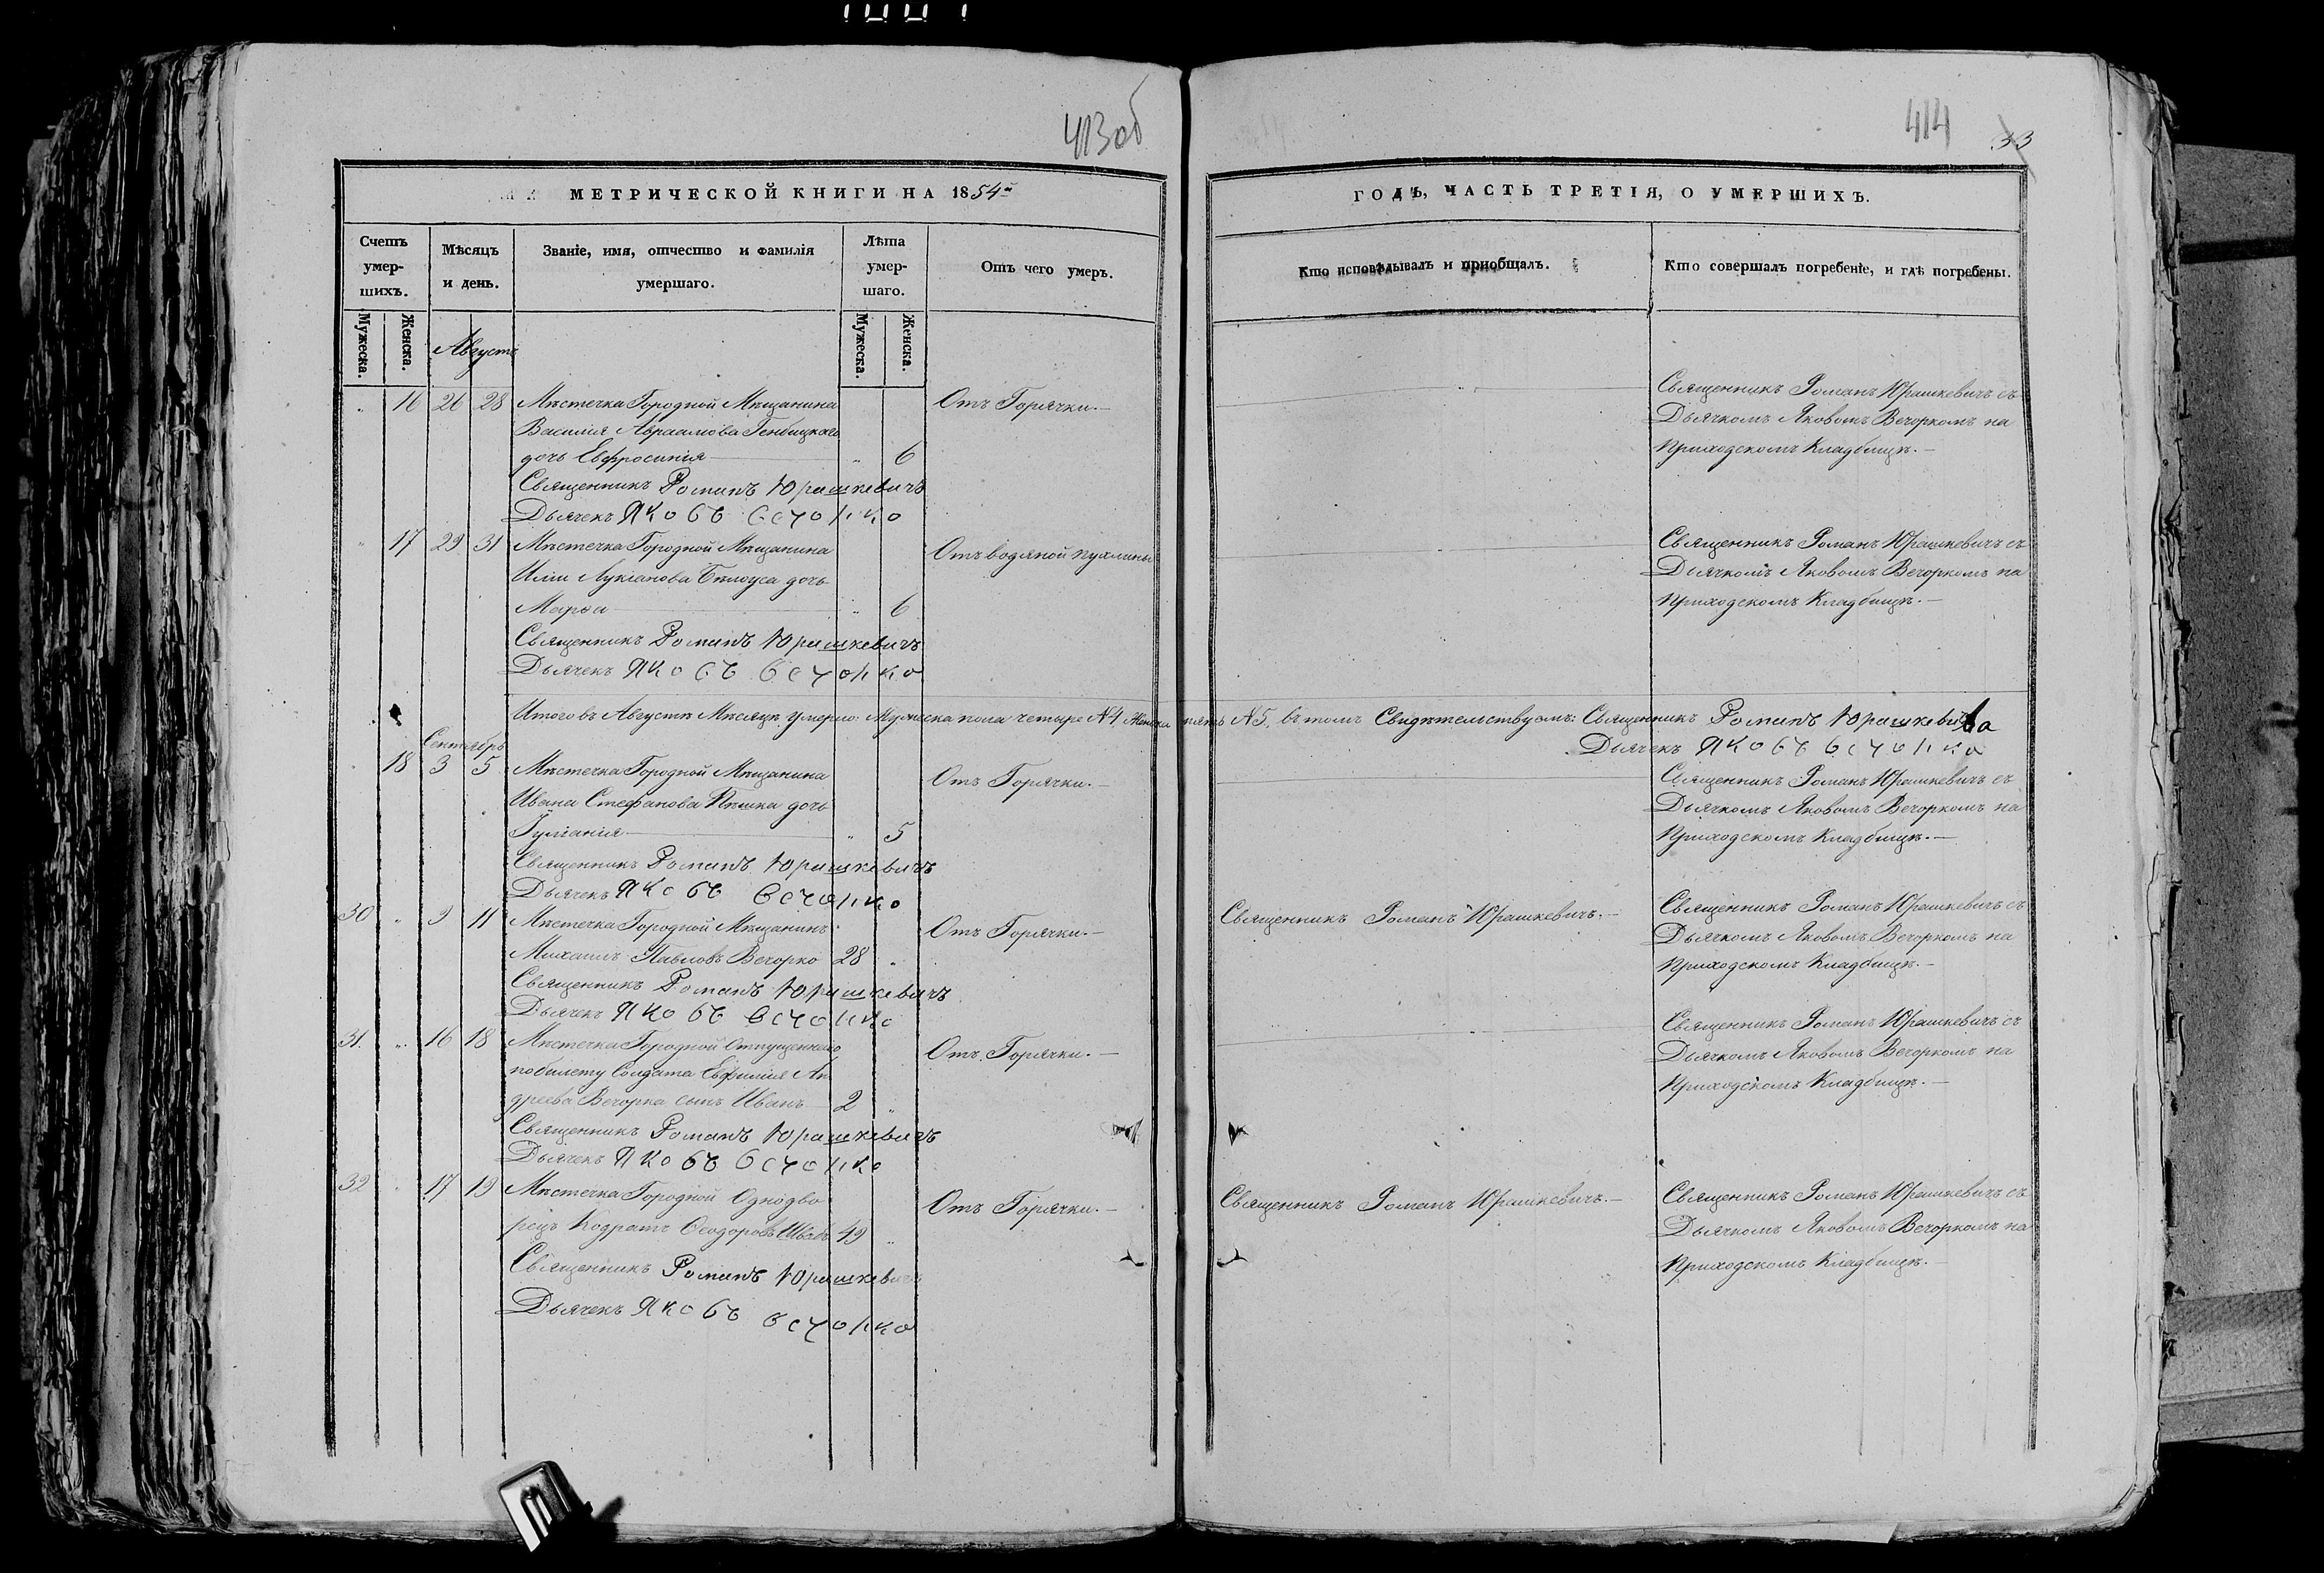 413 об
МЕТРИЧЕСКОЙ КНИГИ НА 1854й
Счетъ умер- шихъ.
Мѣсяцъ и день.
Званіе, имя, отчество и фамилія умершаго.
Лѣта умер- шаго.
Отъ чего умеръ.
Мужеска. Женска.
Мужеска. Женска.
Августъ
„ 16 26 28 Мѣстечка Городной Мѣщанина Отъ Горячки.
Василія Авраамова
дочь Евфросинія „ 6
Священникъ Романъ Юрашкевичъ
Дьячекъ Яковъ Вечорко
„ 17 29 31 Мѣстечка Городной Мѣщанина Отъ водяной пухлины
Иліи Лукіанова Бѣлоуса дочь
Марѳа „ 6
Священникъ Романъ Юрашкевичъ
Дьячекъ Яковъ Вечорко
Итого въ Августѣ Мѣсяцѣ умерло: Мужеска пола четыре №4. Женска пять №5. въ томъ Свидѣтельствуемъ: Священникъ Романъ Юрашкевичъ
Дьячекъ Яковъ Вечорко
Сентябрь
18 3 5 Мѣстечка Городной Мѣщанина Отъ Горячки.
Ивана Стефанова Пѣшка дочь
Іуліанія „ 5
Священникъ Романъ Юрашкевичъ
Дьячекъ Яковъ Вечорко
30 „ 9 11 Мѣстечка Городной Мѣщанинъ Отъ Горячки.
Михаилъ Павловъ Вечорко 28 „
Священникъ Романъ Юрашкевичъ
Дьячекъ Яковъ Вечорко
31. „ 16 18 Мѣстечка Городной Отпущеннаго Отъ Горячки.
по билету Солдата Евфимія Ан
дреева Вечорка сынъ Иванъ 2 „
Священникъ Романъ Юрашкевичъ
Дьячекъ Яковъ Вечорко
32 „ 17 19 Мѣстечка Городной Однодво Отъ Горячки.
рецъ Кодратъ Ѳеодоровъ 49 „
Священникъ Романъ Юрашкевичъ
Дьячекъ Яковъ Вечорко
414
33
ГОДЪ, ЧАСТЬ ТРЕТІЯ, О УМЕРШИХЪ.
Кто исповѣдывалъ и приобщалъ.
Кто совершалъ погребеніе, и гдѣ погребены.
Священникъ Романъ Юрашкевичъ съ
Дьячкомъ Яковомъ Вечоркомъ на
Приходскомъ Кладбищѣ.
Священникъ Романъ Юрашкевичъ съ
Дьячкомъ Яковомъ Вечоркомъ на
Приходскомъ Кладбищѣ.
Священникъ Романъ Юрашкевичъ съ
Дьячкомъ Яковомъ Вечоркомъ на
Приходскомъ Кладбищѣ.
Священникъ Романъ Юрашкевичъ.
Священникъ Романъ Юрашкевичъ съ
Дьячкомъ Яковомъ Вечоркомъ на
Приходскомъ Кладбищѣ.
Священникъ Романъ Юрашкевичъ съ
Дьячкомъ Яковомъ Вечоркомъ на
Приходскомъ Кладбищѣ.
Священникъ Романъ Юрашкевичъ.
Священникъ Романъ Юрашкевичъ съ
Дьячкомъ Яковомъ Вечоркомъ на
Приходскомъ Кладбищѣ.